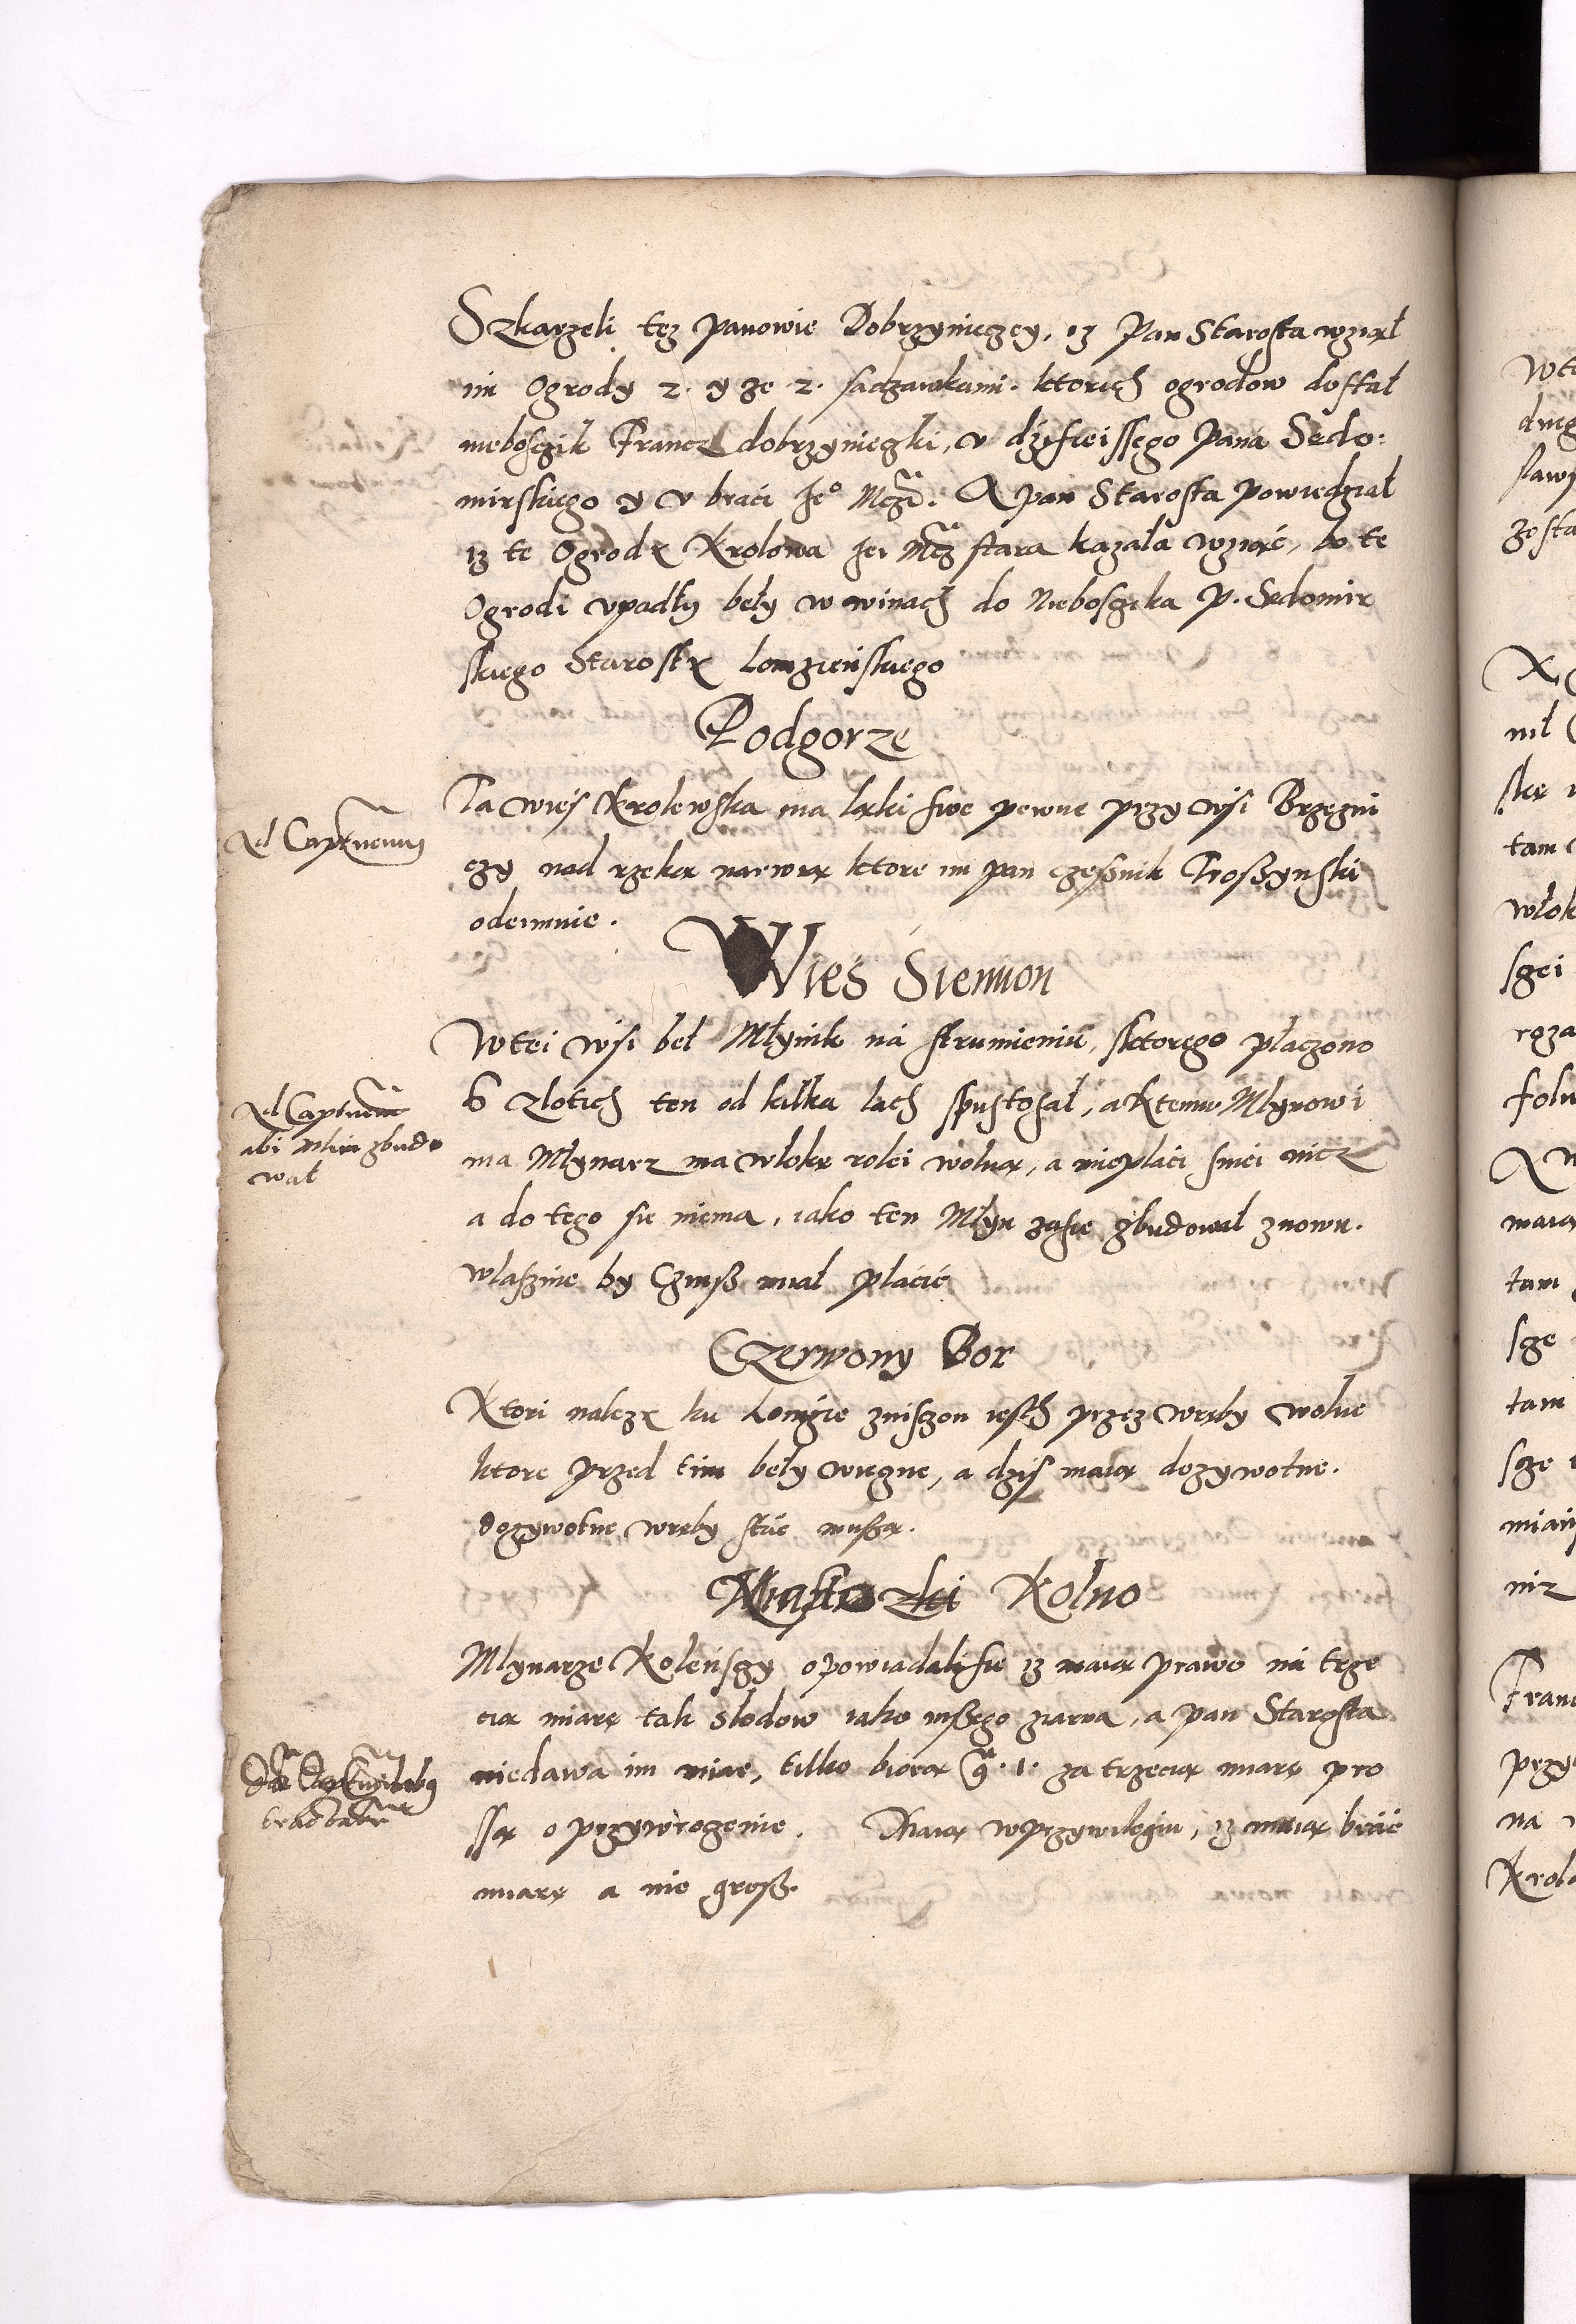 Szkarzeli tez panowie Dobrzynieczcy, iz Pan Starosta wziął
im Ogrody 2. y ze 2. sadzawkami. ktorich ogrodow dostał
nieboszik Francz dobrzynieczki, v dzisieissego Pana Sędo:
mirskiego y v braci Je° Mczi. A pan Starosta powiedział
iz te Ogrodę Krolowa Jei Mcz stara kazała wziąć, bo te
Ogrodi vpadły beły w winach do Nieboszika P. Sędomir
skiego Starostę Lomzieńskiego
Podgorze
Ta wieś Krolewska ma łąki swe pewne przy wsi Brzezni
czy nad rzeką narwią ktore im pan czeßnik Troßzynski
odeimuie.
Wieś Siemion
W tei wsi beł Młynik na strumieniu, sktorego płaczono
6 złotich ten od kilka lach spustoszał, a ktemu Młynowi
ma Młynarz ma włokę rolei wolną, a niepłaci sniei nicz
a do tego się niema, iako ten Młyn zasie zbudował znowu.
właszne by Czynß miał płacić
Czerwony Bor
Ktori należę ku Lomzie zniszon iesth przez wręby wolne
ktore przed tim beły wieczne, a dziś maią dozywotne.
dozywotne wręby stac mußą.
Kolno
Młynarze Koleńszy opowiadali sie iz maią prawo na trze
cią miarę tak słodow iako inßego ziarna, a pan Starosta
niedawa im miar, tilko biorą g. 1. za trzecią miarę pro
ssą o przywrozenie. Maią w przywileiu, iz maią brać
miarę a nie groß.
Ad Capitaneum
Ad Capitaneum
abi mlin zbudo
wał